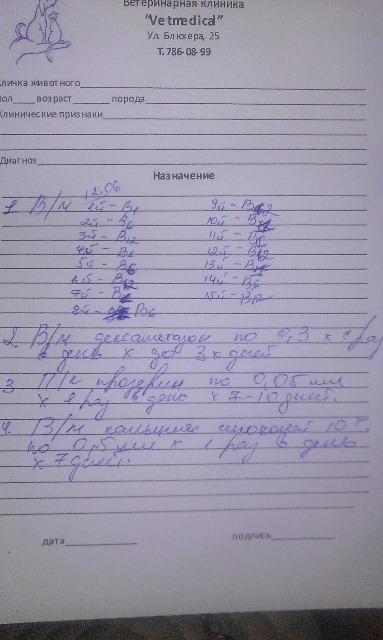 Ветеринарная клиника
“Vetmedical”
Ул. Блюхера, 25
Т.786-08-99
Кличка животного
пол возраст порода
Клинические признаки
Диагноз
Назначение
12.06
1. В/м 1й – В1 9й – В12
2й – В6 10й –
3й – В12 11й –
4й – В1 12й – В12
5й – В6 13й –
6й – В12 14й – В6
7й – 15й – В12
8й – В6
2. В/м дексаметазон по 0,3 х 1 раз
в день х до 3х дней
3 П/к прозерин по 0,05 мл
х 1 раз в день х 7-10 дней.
4. В/м кальция глюконат 10%
по 0,5 мл х 1 раз в день
х 7 дней.
дата подпись